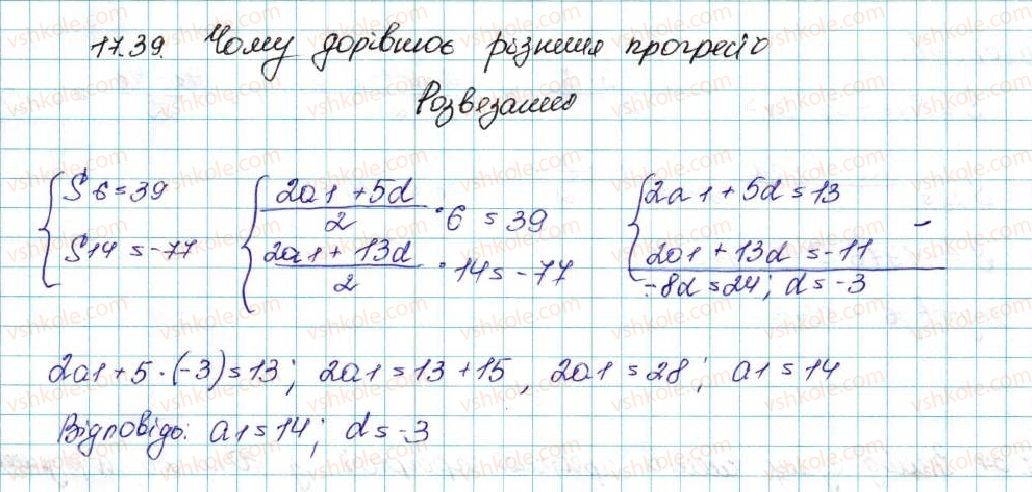 17.39. Чому дорівнює різниця прогресії
Розвезання
{ S6 = 39 { (2a1 + 5d)/2 · 6 = 39 { 2a1 + 5d = 13
S14 = -77 (2a1 + 13d)/2 · 14 = -77 2a1 + 13d = -11 -
-8d = 24; d = -3
2a1 + 5 · (-3) = 13; 2a1 = 13 + 15, 2a1 = 28; a1 = 14
Відповідь: a1 = 14; d = -3